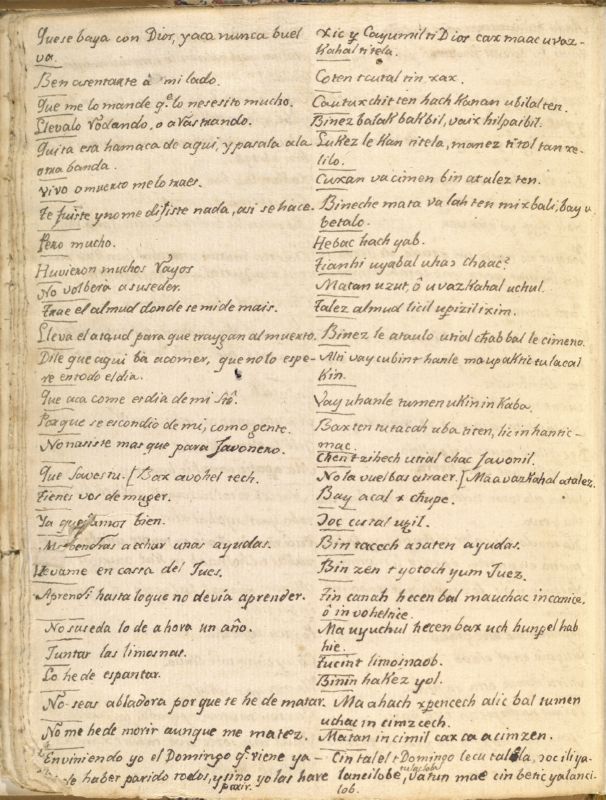 Que se baya con Dios, y aca nunca buel
va.
Ben asentarte à mi lado.
Que me lo mande qe. lo nesesito mucho.
Llevalo Vodando, o aVastrando.
Quita esa hamaca de aqui, y pasala a la
otra banda.
Vivo o muerto me lo traes.
Te fuiste y no me dijiste nada, asi se hace.
Pero mucho.
Huvieron muchos Vayos
No volberà a suseder.
Trae el almud donde se mide mais.
Lleva el ataud para que traygan al muerto.
Dile que aqui ba a comer, que no lo espe-
re en todo el dia.
Que aca come el dia de mi Stô.
Porque se escondio de mi, como gente.
No nasiste mas que para Javonero.
Que Savestu. [Bax avohel tech.
Tienes vos de muger.
Ya quedamos bien.
Me bendras a echar unas ayudas.
Llevame en cassa del Jues.
Aprendi hasta lo que no devia aprender.
No suseda lo de ahora un año.
Juntar las limosnas.
Lo he de espantar.
No seas abladora por que te he de matar.
No me hede morir aunque me matez.
Enviniendo yo el Domingo qe. viene ya
de haber parido todos, y sino yo las hare
parir.
Xic y Cayumil ti Dios cax maac u vaz-
kahal titela.
Coten tcutal tin xax.
Cautuxchit ten hach kanan ubilal ten.
Binez balak bakbil, vaix hilpaibil.
Lukez le kan titela, manez titol tan xe-
lilo.
Cuxan va cimen bin atalez ten.
Bineche mata va lah ten mixbali, bay u
betalo.
Hebac hach yab.
Tianhi uyabal uhaɔ chaac?
Matan uzut, ô u vazkahal uchul.
Talez almud licil upizil ixim.
Binez le ataulo utial chabbal le cimeno.
Alti vay cu bint hanle ma upaktic tulacal
kin.
Vay uhanle tumen ukin in kaba.
Baxten tutacah uba titen, lic in hantic-
mac.
Chen tzihech utial chac Javonil.
No la vuelbas a traer. [Ma avazkahal atalez.
Bay acal x chupe.
Ɔoc cutal uzil.
Bin tacech aɔaten ayudas.
Bin zen t yotoch yum Juez.
Tin canah hecen bal mauchac incanice,
ô in vohelnice.
Ma uyuchul hecen bax uch hunppel hab
hie.
Tucint limosnaob.
Binin hakez yol.
Ma ahach xpencech alic bal tumen
uchac in cimzcech.
Matan in cimil caxca acimzen.
Cin talel t Domingo lecu talela, ɔoc ili ya-
lancilobe, tulacloba va tun mae cin betic yalanci-
lob.